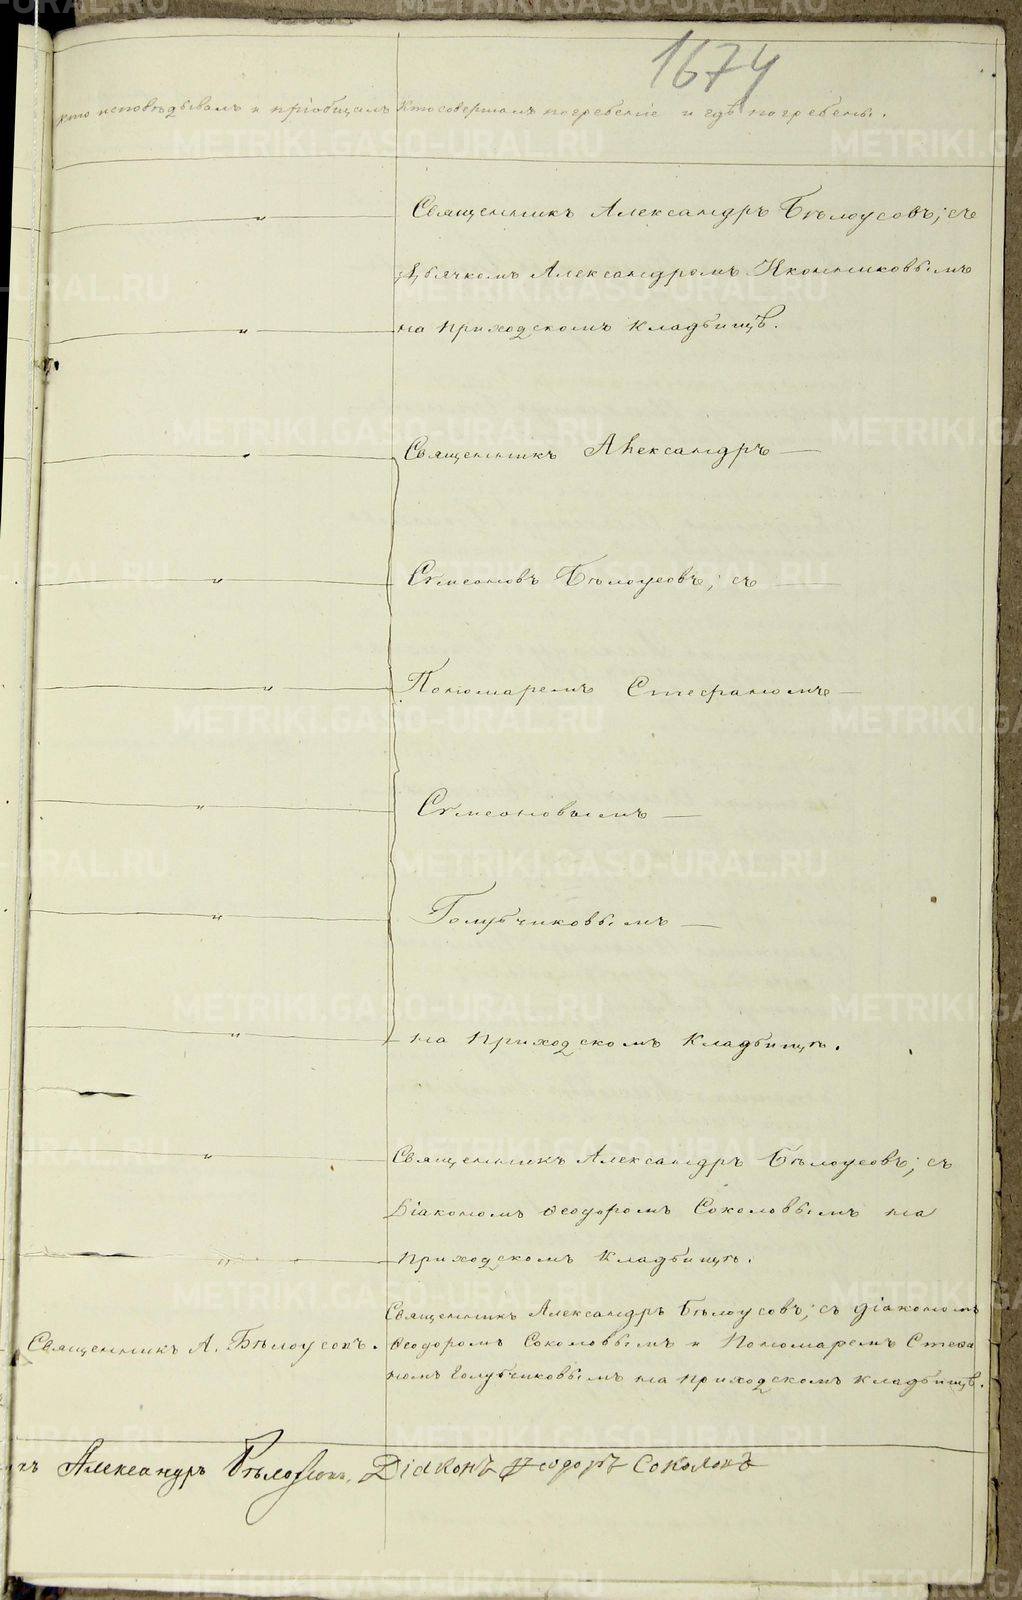 1674
Кто исповѣдывалъ и пріобщалъ
Кто совершалъ погребеніе и гдѣ погребены.
Священникъ Александръ Бѣлоусовъ; съ
Дьячкомъ Александромъ Иконниковымъ
на приходскомъ кладбищѣ.
Священникъ Александръ
Симеоновъ Бѣлоусовъ; съ
Пономаремъ Стефаномъ
Симеоновымъ
Голубчиковымъ
на приходскомъ кладбищѣ.
Священникъ Александръ Бѣлоусовъ; съ
Діакономъ Ѳеодоромъ Соколовымъ на
приходскомъ кладбищѣ.
Священникъ А. Бѣлоусовъ.
Священникъ Александръ Бѣлоусовъ; съ діакономъ
Ѳеодоромъ Соколовымъ и Пономаремъ Стефа
номъ Голубчиковымъ на приходскомъ кладбищѣ.
Александръ Бѣлоусовъ, Діаконъ Ѳеодоръ Соколовъ
METRIKI.GASO-URAL.RU